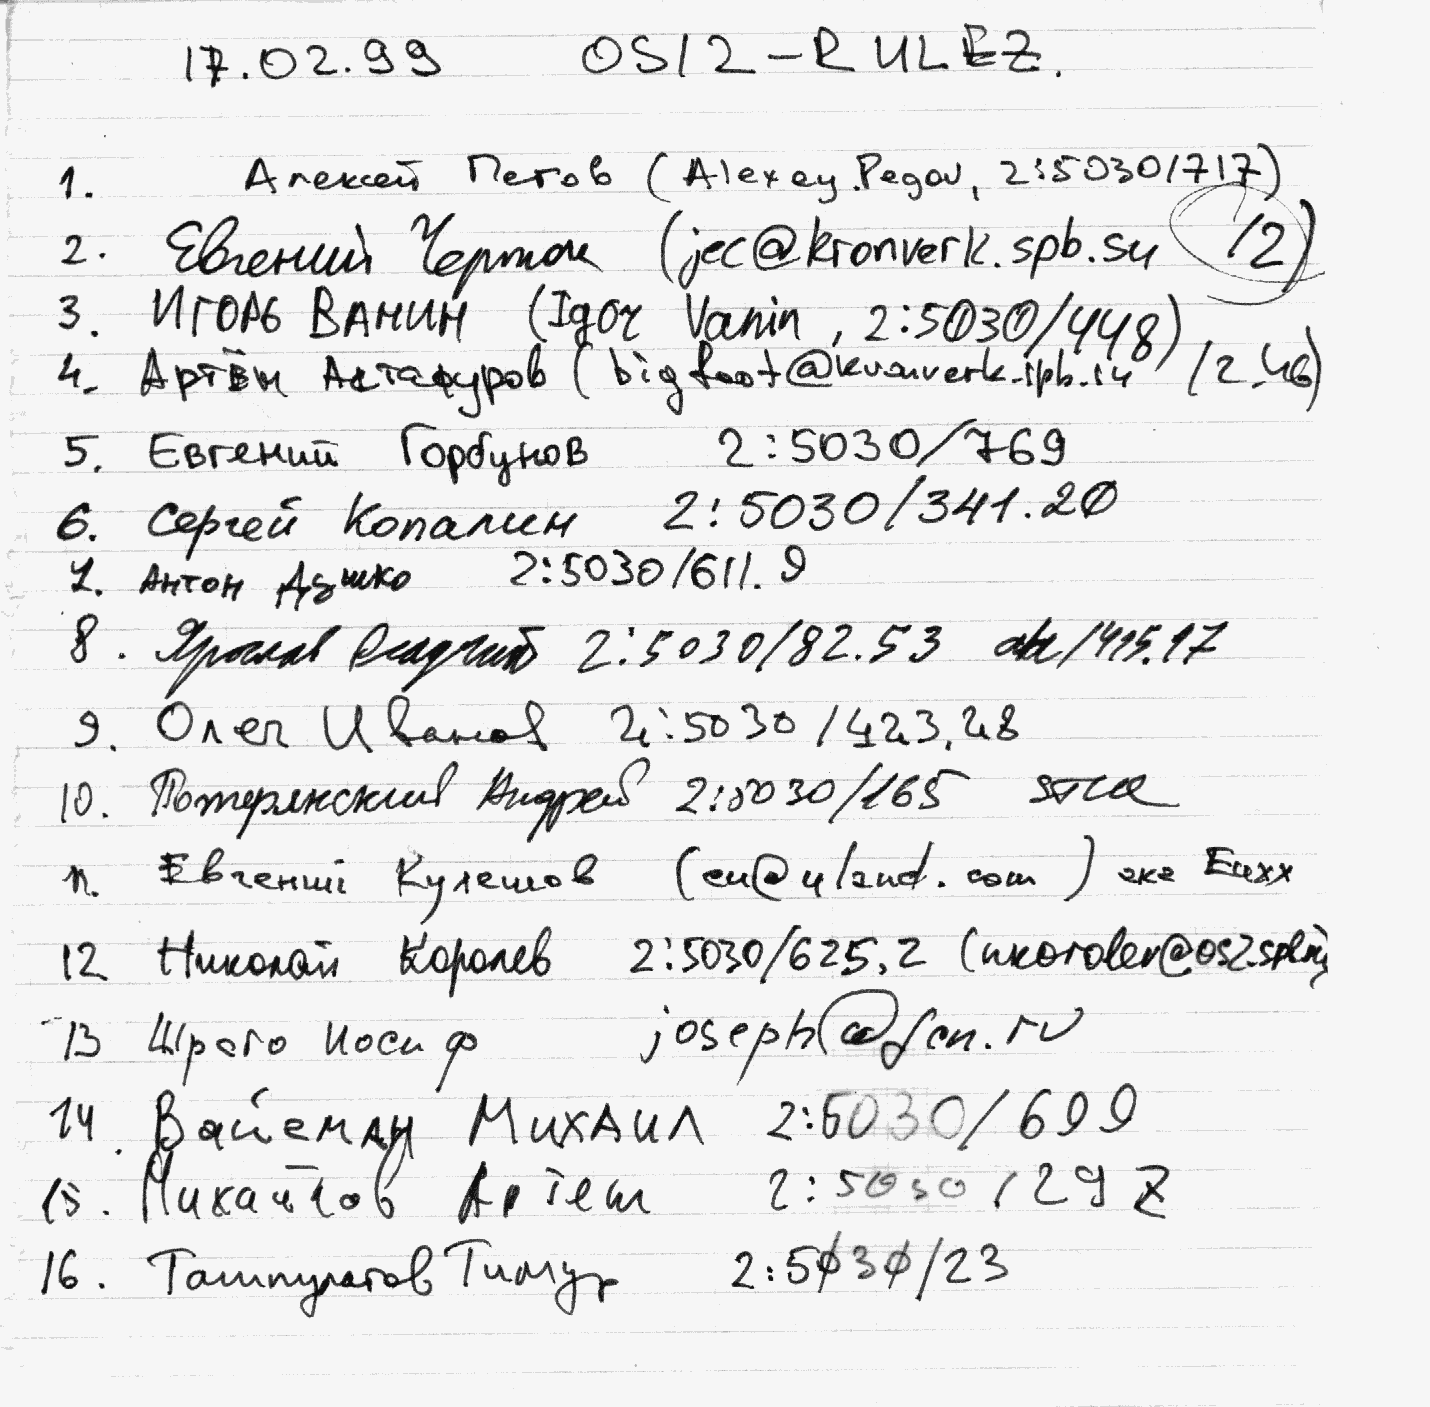 17.02.99 OS/2-RULEZ.
1. Алексей Пегов (Alexey.Pegov, 2:5030/717)
2. Евгений Черток (jec@kronverk.spb.su /2)
3. Игорь Ванин (Igor Vanin, 2:5030/448)
4. Артём Астафуров (bigfoot@kronverk.spb.su /2.46)
5. Евгений Горбунов 2:5030/769
6. Сергей Копалин 2:5030/341.20
7. Антон Душко 2:5030/611.9
8. Ярослав 2:5030/82.53 /415.17
9. Олег Иванов 2:5030/423,28
10. Андрей 2:5030/165
11. Евгений Кулешов (eu@uland.com) aka Euxx
12 Николай Королев 2:5030/625,2 (nkorolev@os2.spb.ru)
13 Шраго Иосиф joseph@fcn.ru
14. Вайсман Михаил 2:5030/699
15. Михайлов Артем 2:5030/292
16. Ташпулатов Тимур 2:5030/23